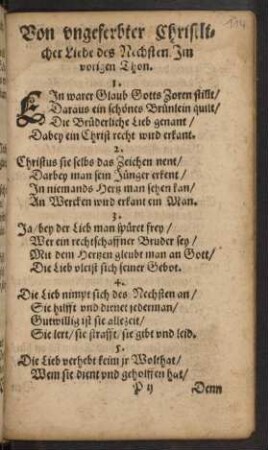 Von vngeferbter Christli-
cher Liebe des Nechsten. Im
vorigen Thon.
1.
EIn warer Glaub Gotts Zoren stillt/
Daraus ein schönes Brünlein quilt/
Die Brüderliche Lieb genant/
Dabey ein Christ recht wird erkant.
2.
Christus sie selbs das Zeichen nent/
Darbey man sein Jünger erkent/
In niemands Hertz man sehen kan/
An Wercken wird erkant ein Man.
3.
Ja/bey der Lieb man spüret frey/
Wer ein rechtschaffner Bruder sey/
Mit dem Hertzen gleubt man an Gott/
Die Lieb vleist sich seiner Gebot.
4.
Die Lieb nimpt sich des Nechsten an/
Sie hilfft vnd dienet jederman/
Gutwillig ist sie allezeit/
Sie lert/sie strafft/sie gibt vnd leid.
5.
Die Lieb verhebt keim jr Wolthat/
Wem sie dient vnd geholffen hat/
P ij Denn